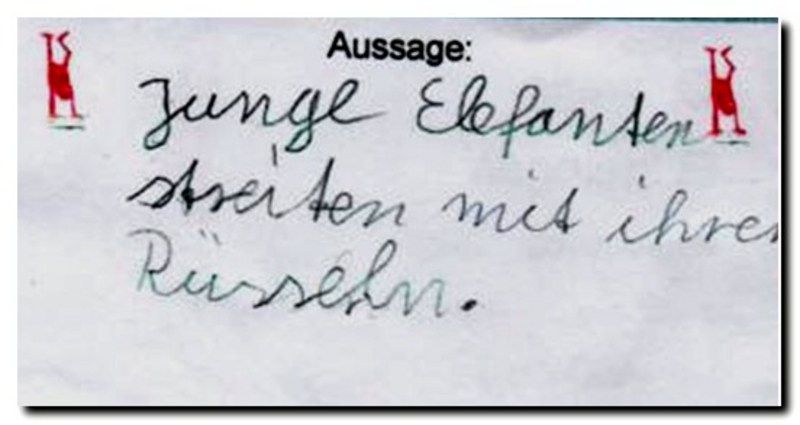 Aussage:
Junge Elefanten
streiten mit ihren
Rüsseln.